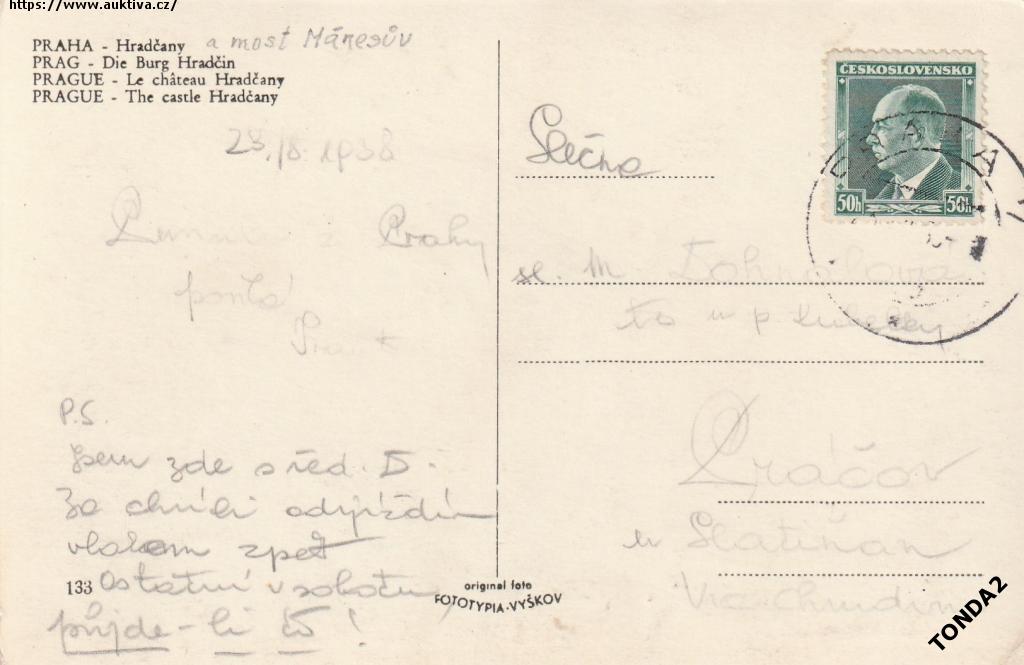 https://www.auktiva.cz/
PRAHA - Hradčany a most Mánesův
PRAG - Die Burg Hradčin
PRAGUE - Le château Hradčany
PRAGUE - The castle Hradčany
23./8. 1938
z Prahy
P.S.
Jsem zde s řed. Š.
Za chvíli odjíždím
vlakem zpět
Ostatní v sobotu,
přijde-li to!
133
original foto
FOTOTYPIA-VYŠKOV
ČESKOSLOVENSKO
50h 50h
PRAHA
Slečna
sl. M. Dohnalová
Práčov
u Slatiňan
TONDA2